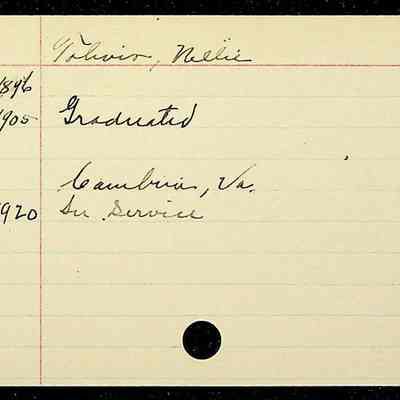 Tolivir, Nellie
1896
1905 Graduated
Cambria, Va.
1920 In Service